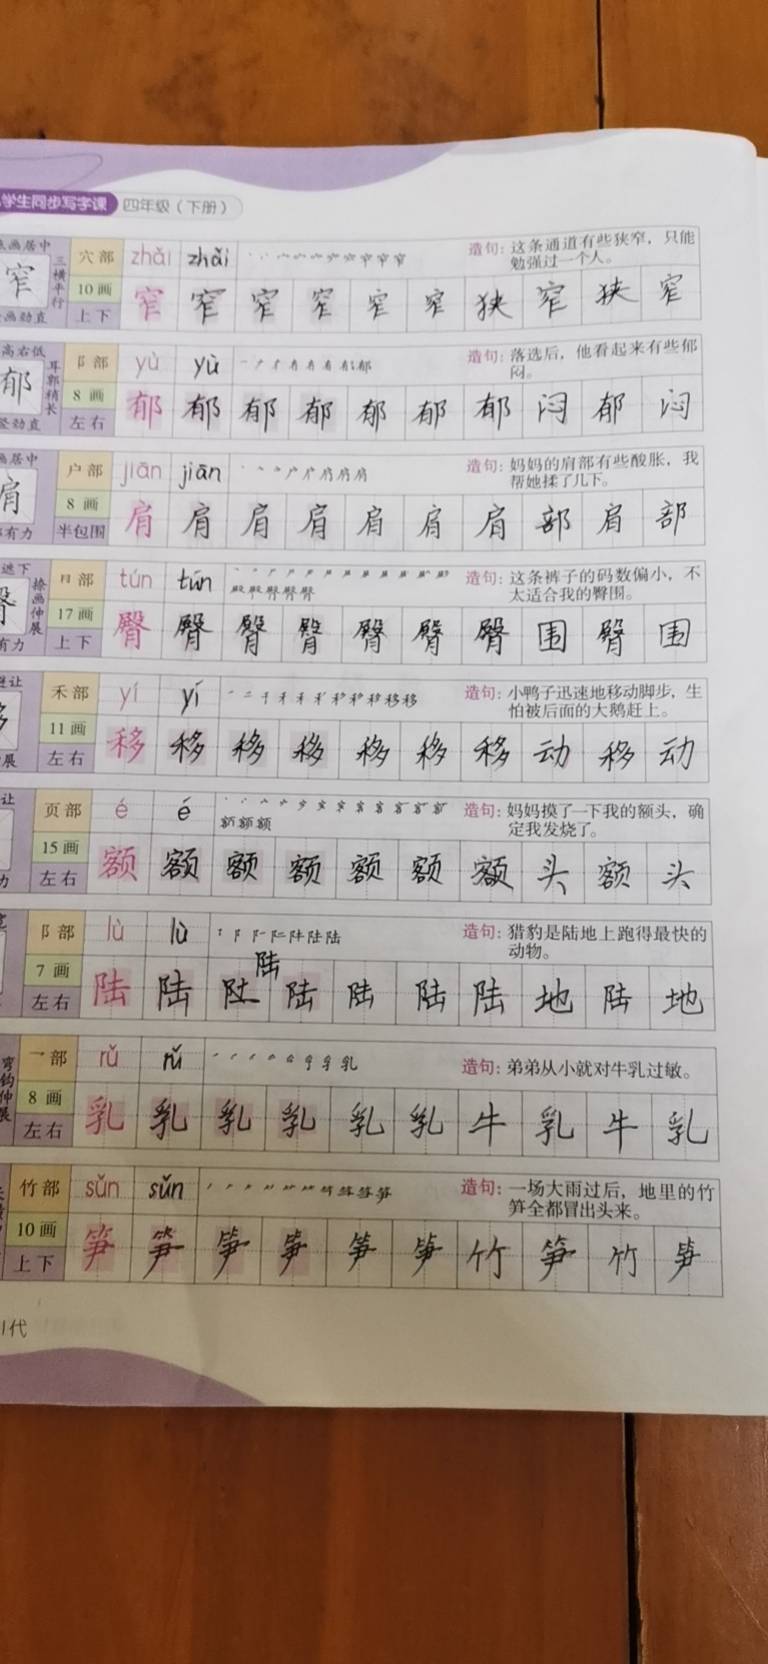 学生同步写字课 四年级（下册）
画居中 三横平行 穴部 zhǎi zhǎi 造句：这条通道有些狭窄，只能
勉强过一个人。
窄 10画 窄 窄 窄 窄 窄 窄 狭 窄 狭 窄
画劲直 上下
高右低 耳郭稍长 阝部 yù yù 造句：落选后，他看起来有些郁
闷。
郁 8画 郁 郁 郁 郁 郁 郁 郁 闷 郁 闷
竖劲直 左右
画居中 户部 jiān jiān 造句：妈妈的肩部有些酸胀，我
帮她揉了几下。
肩 8画 肩 肩 肩 肩 肩 肩 肩 部 肩 部
有力 半包围
遮下 捺画伸展 月部 tún tún 造句：这条裤子的码数偏小，不
太适合我的臀围。
17画 臀 臀 臀 臀 臀 臀 臀 围 臀 围
有力 上下
让 禾部 yí yí 造句：小鸭子迅速地移动脚步，生
怕被后面的大鹅赶上。
11画 移 移 移 移 移 移 移 动 移 动
展 左右
让 页部 é é 造句：妈妈摸了一下我的额头，确
定我发烧了。
15画 额 额 额 额 额 额 额 头 额 头
力 左右
阝部 lù lù 造句：猎豹是陆地上跑得最快的
动物。
陆
7画 陆 陆 陆 陆 陆 陆 地 陆 地
左右
弯钩伸展 乛部 rǔ rǔ 造句：弟弟从小就对牛乳过敏。
8画 乳 乳 乳 乳 乳 乳 牛 乳 牛 乳
左右
竹部 sǔn sǔn 造句：一场大雨过后，地里的竹
笋全都冒出头来。
10画 笋 笋 笋 笋 笋 笋 竹 笋 竹 笋
上下
代